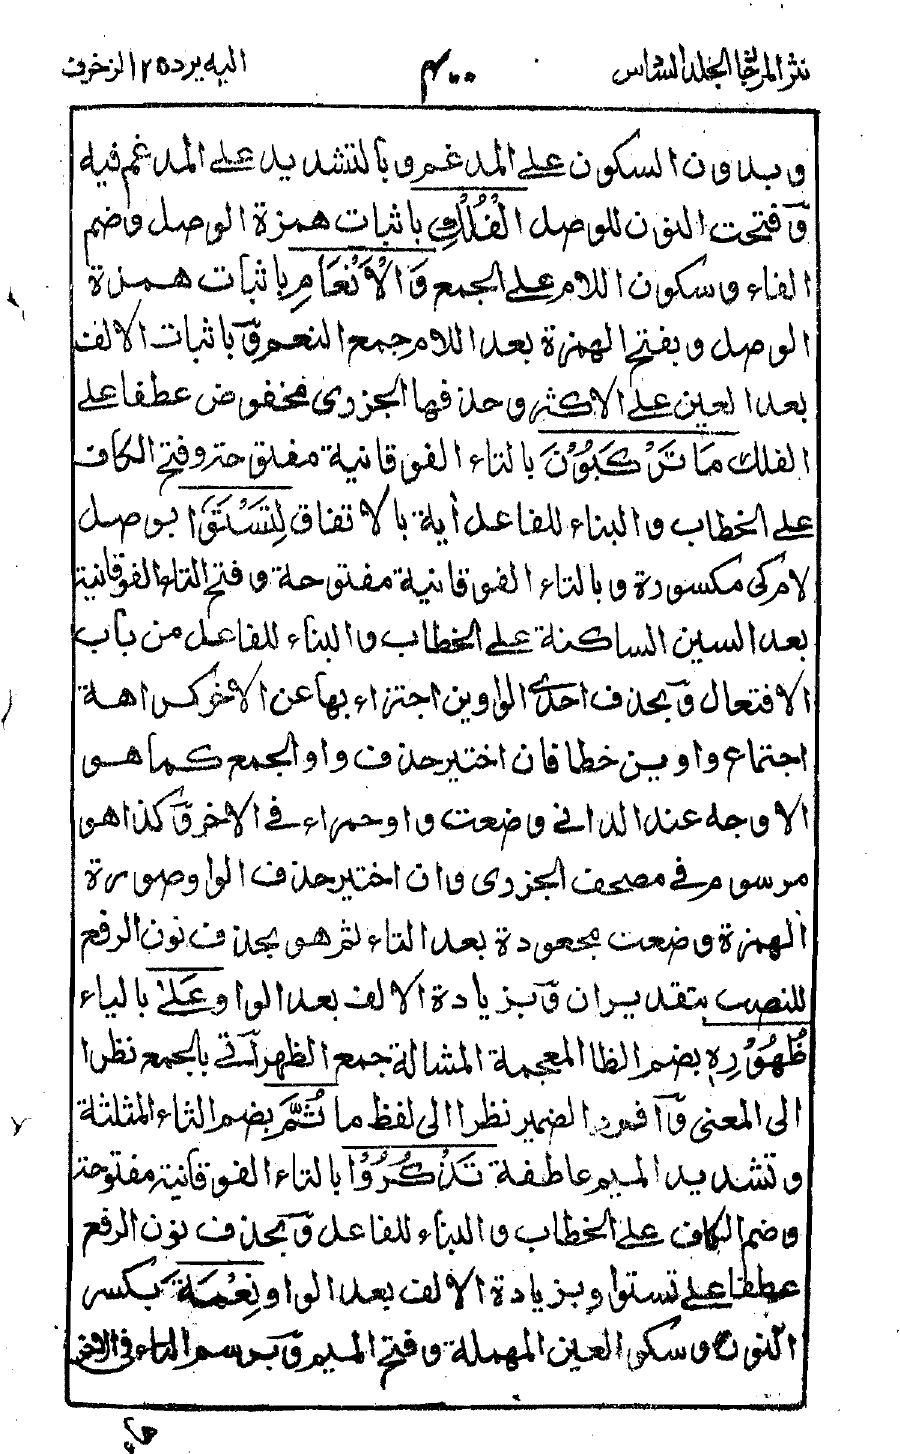 نثر المرجان الجلد السادس ٤٠٠ اليه يرد ٢٥ الزخرف
وبدون السكون على المدغم وبالتشديد على المدغم فيه
وَفتحت النون للوصل الْفُلْكِ باثبات همزة الوصل وضم
الفاء وسكون اللام على الجمع وَالْاَنْعَامِ باثبات همزة
الوصل وبفتح الهمزة بعد اللام جمع النعم وَباثبات الالف
بعد العين على الاكثر وحذفها الجزرى مخفوض عطفا على
الفلك مَا تَرْكَبُوْنَ بالتاء الفوقانية مفتوحة وفتح الكاف
على الخطاب والبناء للفاعل أية بالاتفاق لِتَسْتَوٗا بوصل
لام كى مكسورة وبالتاء الفوقانية مفتوحة وفتح التاء الفوقانية
بعد السين الساكنة على الخطاب والبناء للفاعل من باب
الافتعال وَبحذف احدى الواوين اجتزاء بها عن الاخر كراهة
اجتماع واوين خطا فان اختير حذف واو الجمع كما هو
الاوجه عند الدانى وضعت واو حمراء فى الاخر وَكذا هو
مرسوم فى مصحف الجزرى وان اختير حذف الواو صورة
الهمزة وضعت مجعودة بعد التاء ثم هو بحذف نون الرفع
للنصب بتقدير ان وَبزيادة الالف بعد الواو عَلٰى بالياء
ظُهُوْرِهٖ بضم الظا المعجمة المشالة جمع الظهر اَتى بالجمع نظرا
الى المعنى وَافرد الضمير نظرا الى لفظ ما ثُمَّ بضم الثاء المثلثة
وتشديد الميم عاطفة تَذْكُرُوْا بالتاء الفوقانية مفتوحة
وضم الكاف على الخطاب والبناء للفاعل وَبحذف نون الرفع
عطفا على تستوا وبزيادة الالف بعد الواو نِعْمَةَ بكسر
النون وسكون العين المهملة وفتح الميم وَبرسم التاء فى الاخر
هاء